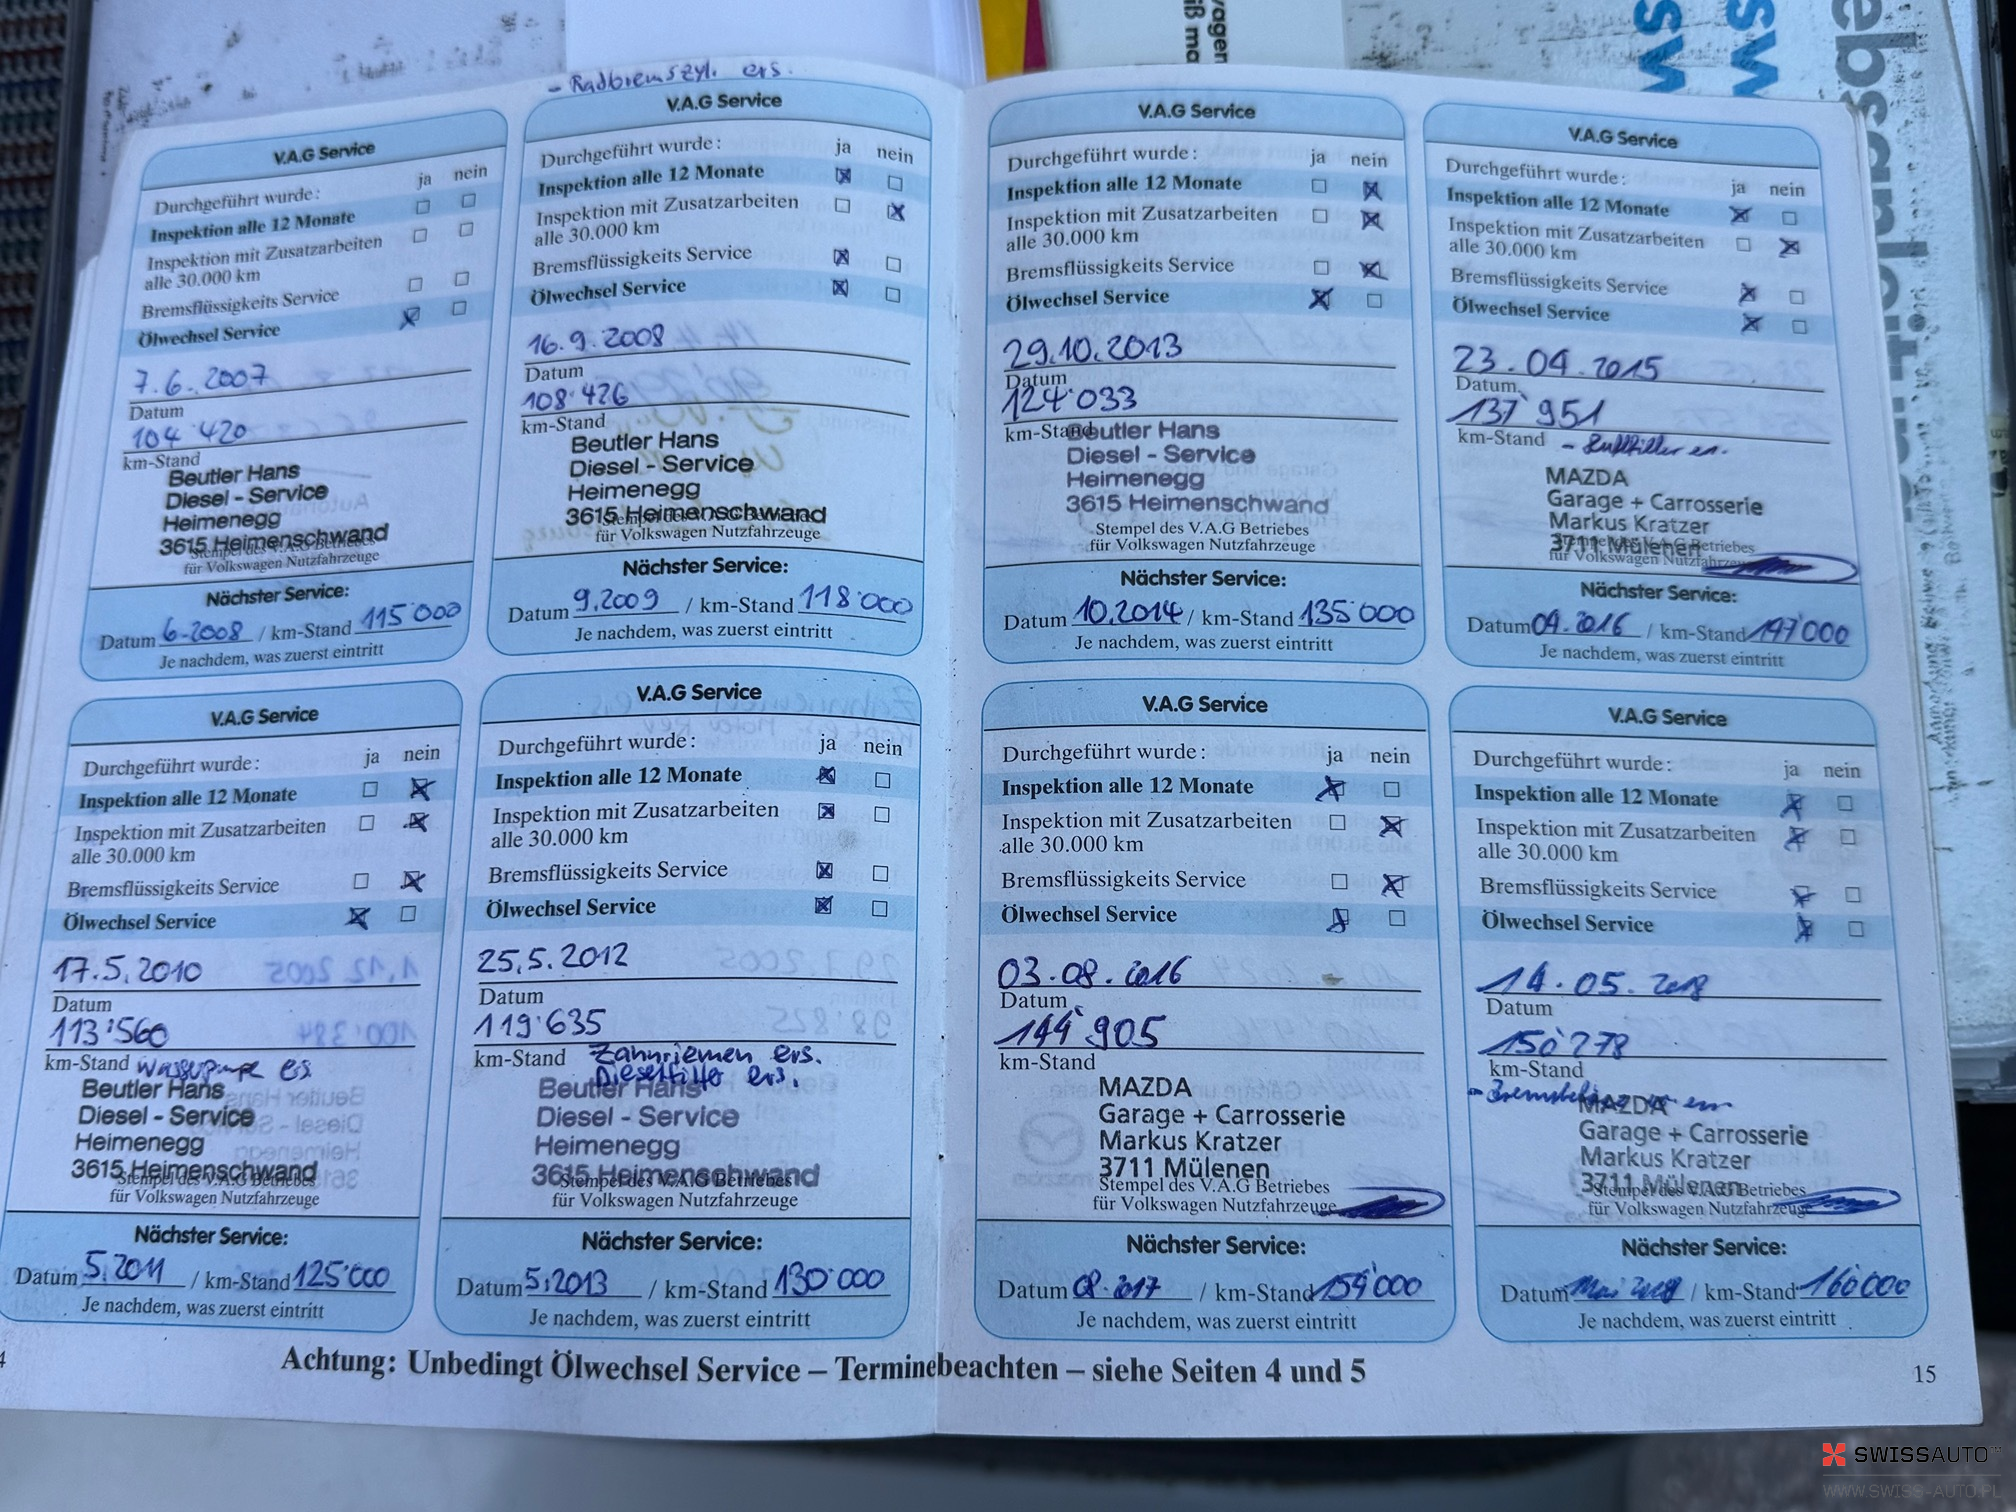 - Radbremszyl. ers.
V.A.G Service
Durchgeführt wurde: ja nein
Inspektion alle 12 Monate
Inspektion mit Zusatzarbeiten
alle 30.000 km
Bremsflüssigkeits Service
Ölwechsel Service
7.6.2007
Datum
104'420
km-Stand
Beutler Hans
Diesel - Service
Heimenegg
3615 Heimenschwand
Stempel des V.A.G Betriebes
für Volkswagen Nutzfahrzeuge
Nächster Service:
Datum 6-2008 / km-Stand 115'000
Je nachdem, was zuerst eintritt
V.A.G Service
Durchgeführt wurde: ja nein
Inspektion alle 12 Monate
Inspektion mit Zusatzarbeiten
alle 30.000 km
Bremsflüssigkeits Service
Ölwechsel Service
16.9.2008
Datum
108'426
km-Stand
Beutler Hans
Diesel - Service
Heimenegg
3615 Heimenschwand
Stempel des V.A.G Betriebes
für Volkswagen Nutzfahrzeuge
Nächster Service:
Datum 9.2009 / km-Stand 118'000
Je nachdem, was zuerst eintritt
V.A.G Service
Durchgeführt wurde: ja nein
Inspektion alle 12 Monate
Inspektion mit Zusatzarbeiten
alle 30.000 km
Bremsflüssigkeits Service
Ölwechsel Service
17.5.2010
Datum
113'560
km-Stand Wasserpumpe ers
Beutler Hans
Diesel - Service
Heimenegg
3615 Heimenschwand
Stempel des V.A.G Betriebes
für Volkswagen Nutzfahrzeuge
Nächster Service:
Datum 5.2011 / km-Stand 125'000
Je nachdem, was zuerst eintritt
V.A.G Service
Durchgeführt wurde: ja nein
Inspektion alle 12 Monate
Inspektion mit Zusatzarbeiten
alle 30.000 km
Bremsflüssigkeits Service
Ölwechsel Service
25.5.2012
Datum
119'635
km-Stand Zahnriemen ers.
Dieselfilter ers.
Beutler Hans
Diesel - Service
Heimenegg
3615 Heimenschwand
Stempel des V.A.G Betriebes
für Volkswagen Nutzfahrzeuge
Nächster Service:
Datum 5.2013 / km-Stand 130'000
Je nachdem, was zuerst eintritt
V.A.G Service
Durchgeführt wurde: ja nein
Inspektion alle 12 Monate
Inspektion mit Zusatzarbeiten
alle 30.000 km
Bremsflüssigkeits Service
Ölwechsel Service
29.10.2013
Datum
124'033
km-Stand
Beutler Hans
Diesel - Service
Heimenegg
3615 Heimenschwand
Stempel des V.A.G Betriebes
für Volkswagen Nutzfahrzeuge
Nächster Service:
Datum 10.2014 / km-Stand 135'000
Je nachdem, was zuerst eintritt
V.A.G Service
Durchgeführt wurde: ja nein
Inspektion alle 12 Monate
Inspektion mit Zusatzarbeiten
alle 30.000 km
Bremsflüssigkeits Service
Ölwechsel Service
23.04.2015
Datum
137'951
km-Stand - Luftfilter er.
MAZDA
Garage + Carrosserie
Markus Kratzer
3711 Mülenen
Stempel des V.A.G Betriebes
für Volkswagen Nutzfahrzeuge
Nächster Service:
Datum 04.2016 / km-Stand 147'000
Je nachdem, was zuerst eintritt
V.A.G Service
Durchgeführt wurde: ja nein
Inspektion alle 12 Monate
Inspektion mit Zusatzarbeiten
alle 30.000 km
Bremsflüssigkeits Service
Ölwechsel Service
03.08.2016
Datum
144'905
km-Stand
MAZDA
Garage + Carrosserie
Markus Kratzer
3711 Mülenen
Stempel des V.A.G Betriebes
für Volkswagen Nutzfahrzeuge
Nächster Service:
Datum 08.2017 / km-Stand 154'000
Je nachdem, was zuerst eintritt
V.A.G Service
Durchgeführt wurde: ja nein
Inspektion alle 12 Monate
Inspektion mit Zusatzarbeiten
alle 30.000 km
Bremsflüssigkeits Service
Ölwechsel Service
14.05.2018
Datum
150'278
km-Stand
MAZDA
Garage + Carrosserie
Markus Kratzer
3711 Mülenen
Stempel des V.A.G Betriebes
für Volkswagen Nutzfahrzeuge
Nächster Service:
Datum Mai / km-Stand 160'000
Je nachdem, was zuerst eintritt
Achtung: Unbedingt Ölwechsel Service – Termine beachten – siehe Seiten 4 und 5
15
SWISSAUTO
WWW.SWISS-AUTO.PL